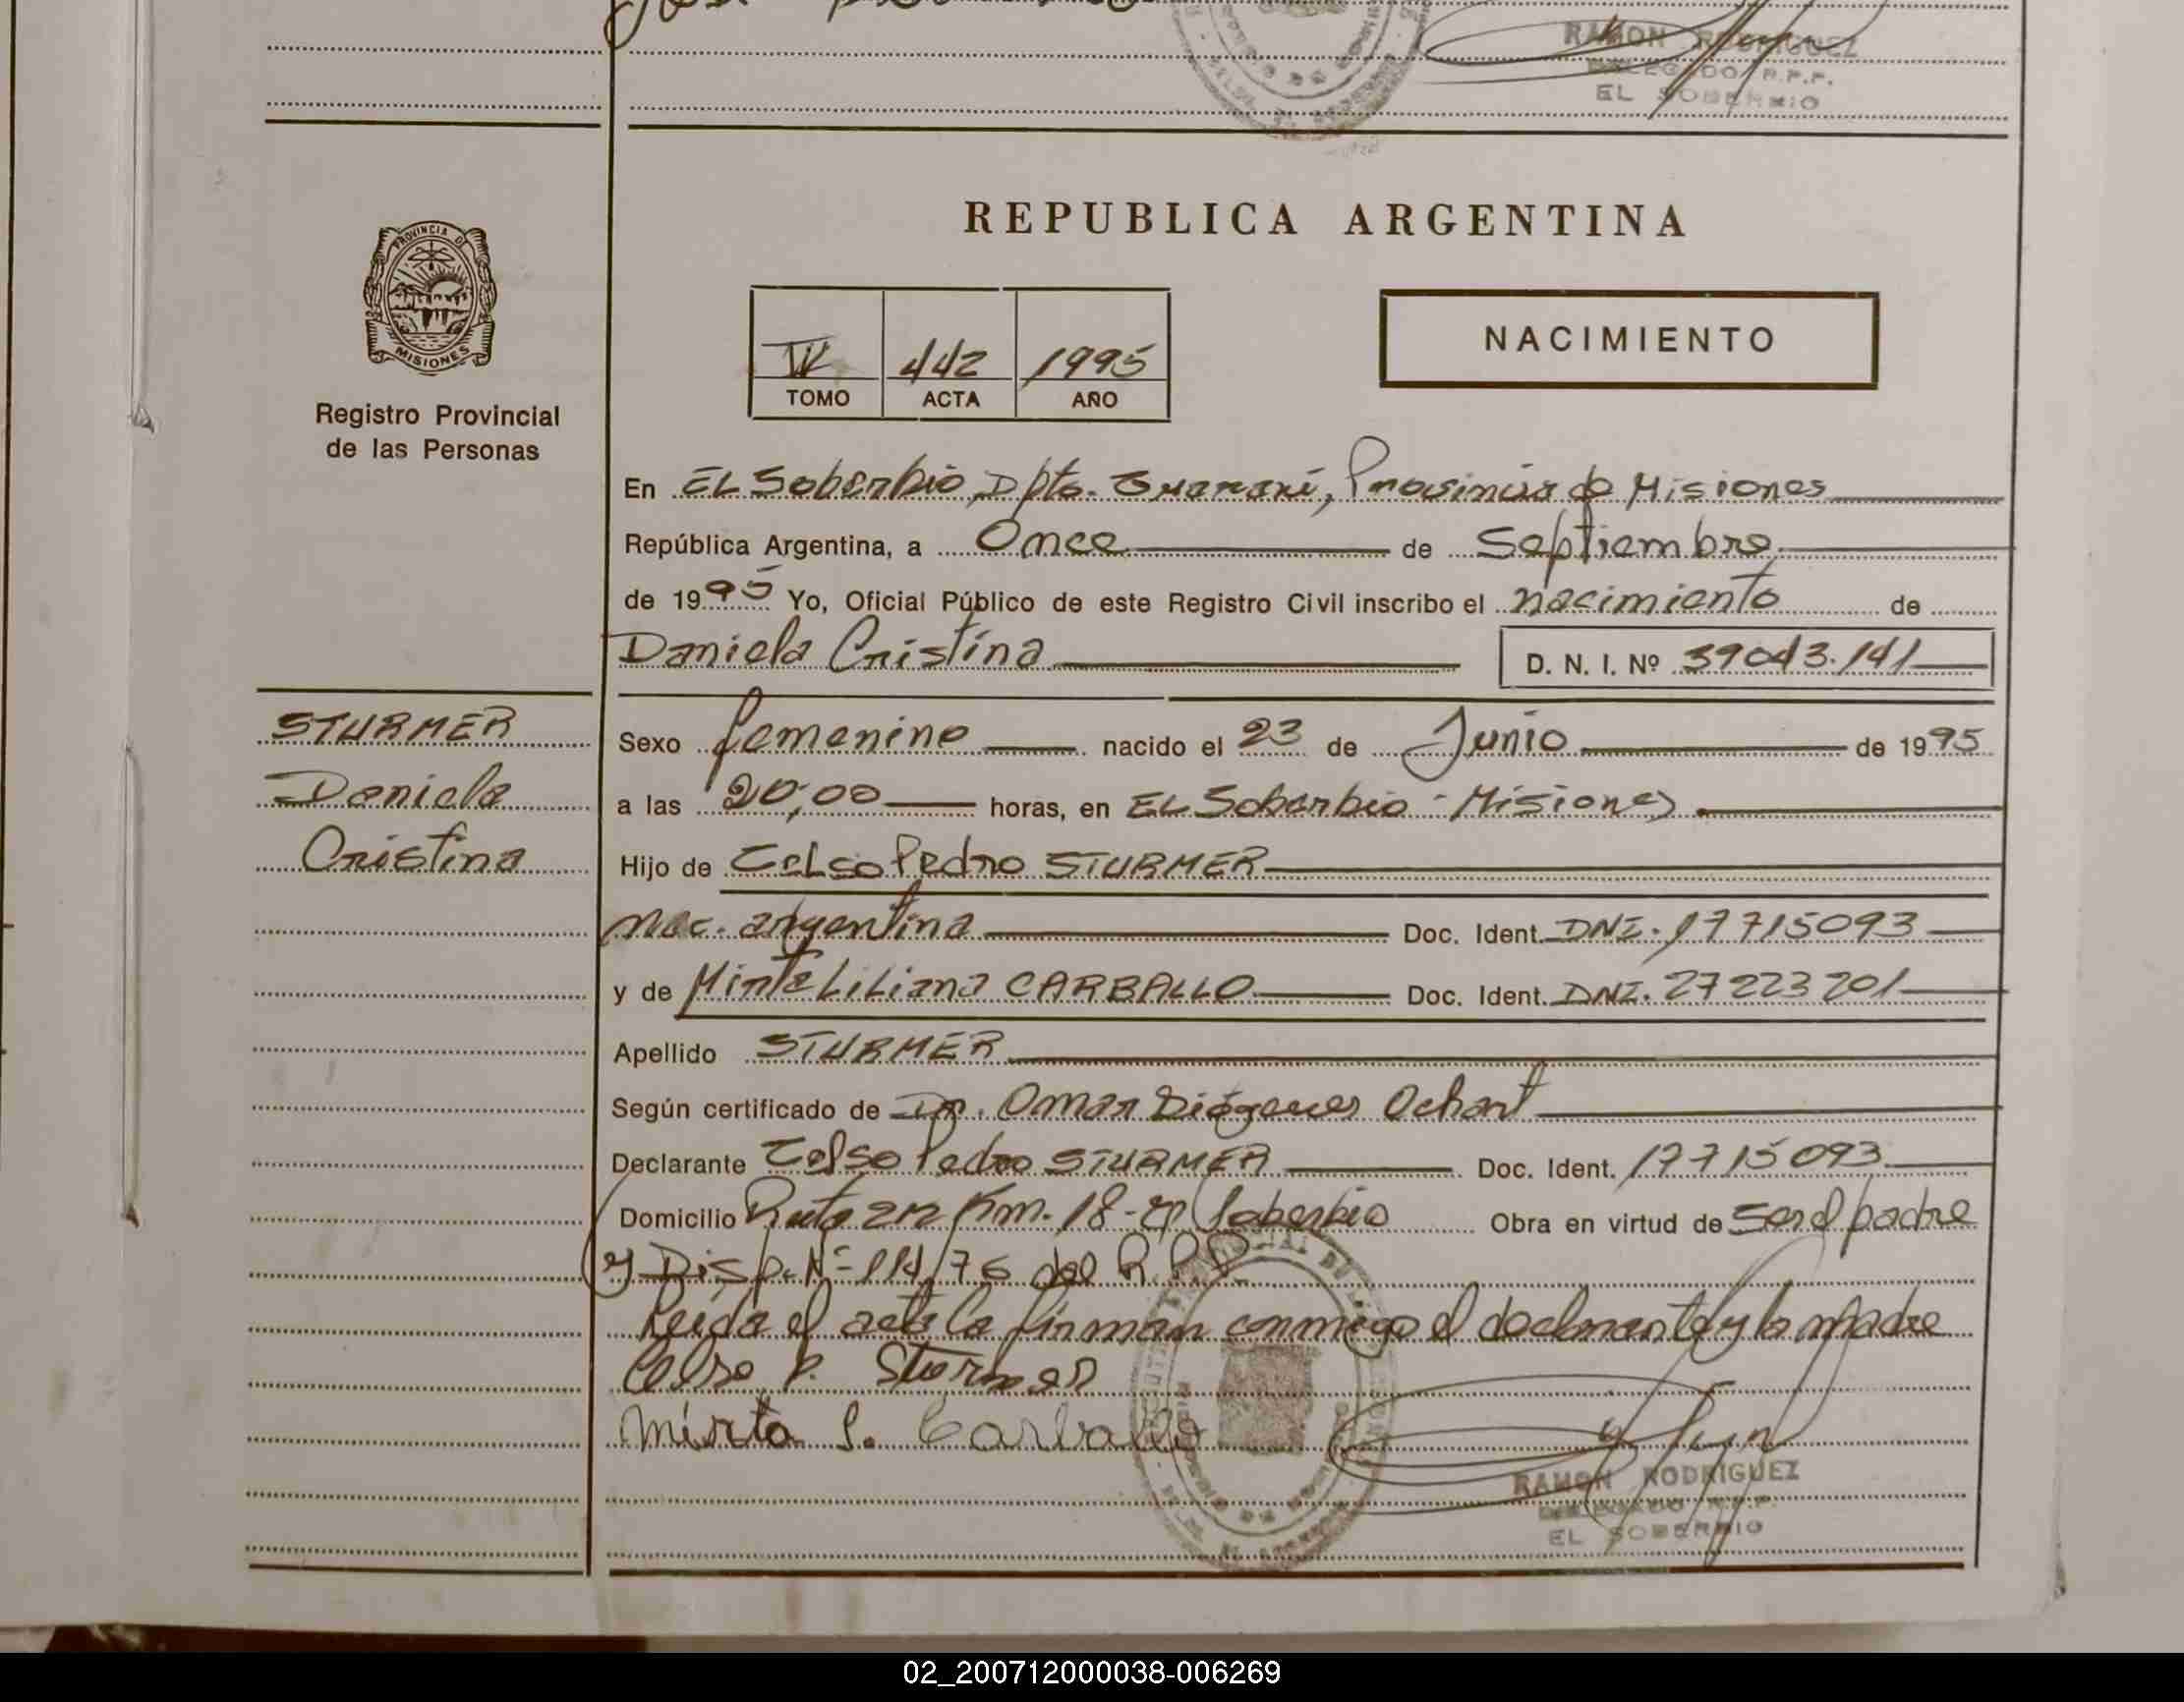 RAMON RODRIGUEZ
DELEGADO R.P.P.
EL SOBERBIO
REPUBLICA ARGENTINA
PROVINCIA D
MISIONES
Registro Provincial
de las Personas
NACIMIENTO
IV 442 1995
TOMO ACTA AÑO
En EL Soberbio, Dpto. Guaraní, Provincia de Misiones
República Argentina, a Once de Septiembre
de 1995 Yo, Oficial Público de este Registro Civil inscribo el nacimiento de
Daniela Cristina D. N. I. Nº 39043.141
STURMER
Daniela
Cristina
Sexo femenino nacido el 23 de Junio de 1995
a las 20;00 horas, en EL Soberbio - Misiones
Hijo de Celso Pedro STURMER
Nac. argentina Doc. Ident. DNI. 17715093
y de Mirta Liliana CARBALLO Doc. Ident. DNI. 27223201
Apellido STURMER
Según certificado de Dr. Omar Diógenes Ochart
Declarante Celso Pedro STURMER Doc. Ident. 17715093
Domicilio Ruta 212 Km. 18 - El Soberbio Obra en virtud de Ser el padre
y Disp. Nº 114/76 del R.P.P.
Leída el acta la firman conmigo el declarante y la madre
Celso P. Sturmer
Mirta L. Carballo
RAMON RODRIGUEZ
DELEGADO R.P.P.
EL SOBERBIO
02_200712000038-006269